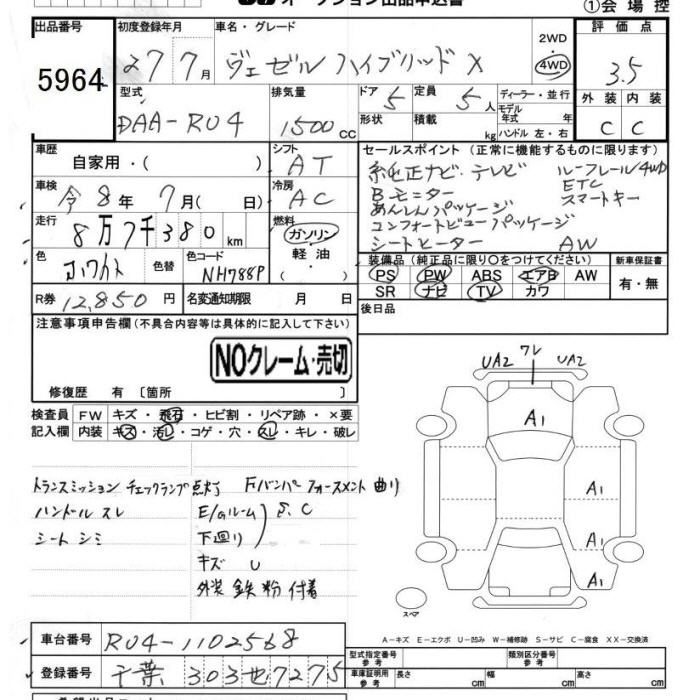 オークション出品申込書
①会場控
出品番号 初度登録年月 車名・グレード 評価点
5964 27 7月 ヴェゼル ハイブリッド X 2WD 4WD 3.5
型式 排気量 ドア 定員 ディーラー・並行 外装 内装
DAA-RU4 1500cc 5 5人 モデル年式 年 C C
形状 積載 kg ハンドル 左・右
車歴 シフト セールスポイント (正常に機能するものに限ります)
自家用・( ) AT 純正ナビ・テレビ ルーフレール 4WD
車検 冷房 Bモニター ETC
令8年7月( 日) AC あんしんパッケージ スマートキー
走行 燃料 コンフォートビューパッケージ
8万7千380km ガソリン・軽油・( ) シートヒーター AW
色 色替 色コード 装備品 (純正品に限り○をつけてください) 新車保証書
ホワイト NH788P PS PW ABS エアB AW 有・無
SR ナビ TV カワ
R券 12,850円 名変通知期限 月 日 後日品
注意事項申告欄 (不具合内容等は具体的に記入して下さい)
NOクレーム・売切
修復歴 有 〔箇所 〕
検査員 FW キズ・飛石・ヒビ割・リペア跡・×要
記入欄 内装 キズ・汚レ・コゲ・穴・スレ・キレ・破レ
UA2 ワレ UA2
A1
A1
A1
A1
スペア
トランスミッション チェックランプ点灯 Fバンパーフォースメント曲り
ハンドル スレ E/Gルーム S.C
シート シミ 下廻り
キズ U
外装 鉄粉 付着
A-キズ E-エクボ U-凹み W-補修跡 S-サビ C-腐食 XX-交換済
車台番号 RU4-1102568
型式指定番号 参考 類別区分番号 参考
登録番号 千葉 303 せ 7275
車庫証明用 参考 長さ cm 幅 cm 高さ cm